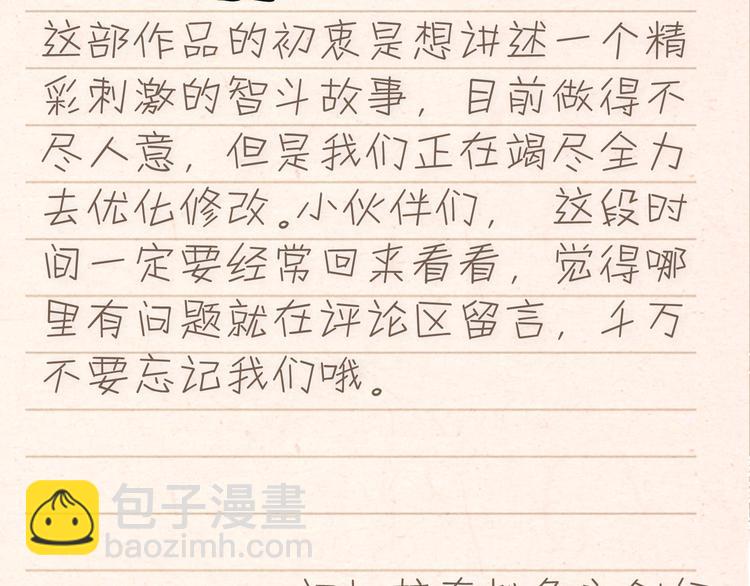 这部作品的初衷是想讲述一个精
彩刺激的智斗故事，目前做得不
尽人意，但是我们正在竭尽全力
去优化修改。小伙伴们，这段时
间一定要经常回来看看，觉得哪
里有问题就在评论区留言，千万
不要忘记我们哦。
包子漫畫
baozimh.com